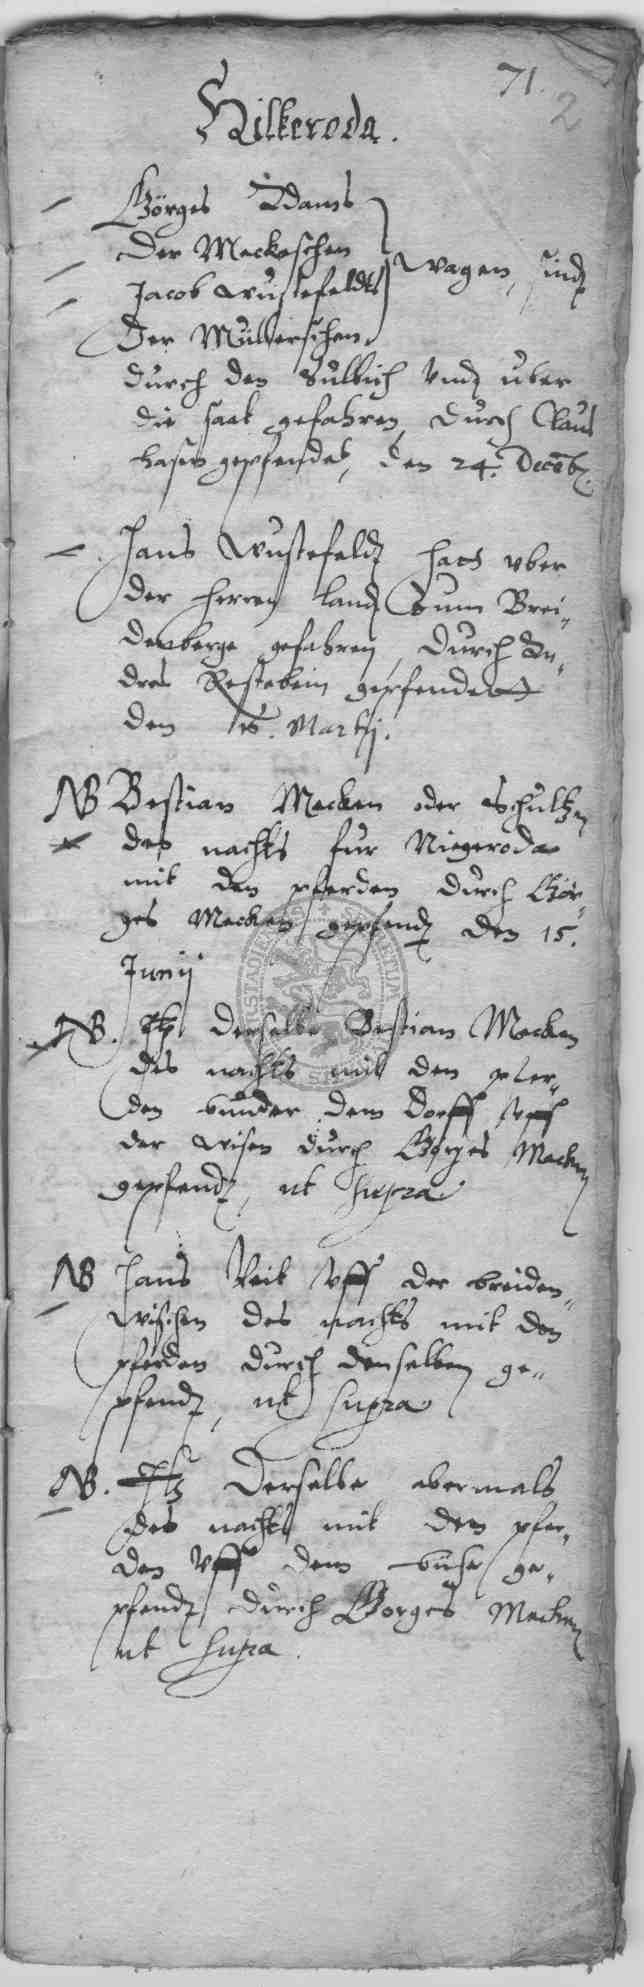 71.
2
Hilkeroda.
Görges Adams
Der Meckeschen
Jacob Wustefeldts
Der Müllerschen
Wagen, sindt
durch den Sulbich Undt uber
die saat gefahren, durch Claus
Hasen gepfendet, den 24. Decēb.
Hans Wustefeldt hatt uber
der Herren landt Zum Brei-
denberge gefahren, durch An-
dres gepfendett
den Martij.
NB Bestian Mecken oder Schultzen
des nachts fur Niegeroda
mit den pferden durch Gör-
ges Mecken gepfendt den 15.
Junij
NB. Derselbe Bestian Mecken
des nachts mit den pfer-
den under dem Dorff Uff
der wisen durch Görges Mecken
gepfendt, ut supra
NB Hans Veit Uff der breiden-
wischen des nachts mit den
pferden durch denselben ge-
pfendt, ut supra
NB. Derselbe abermals
des nachts mit den pfer-
den Uff dem ge-
pfendt durch Görges Mecken
ut supra.